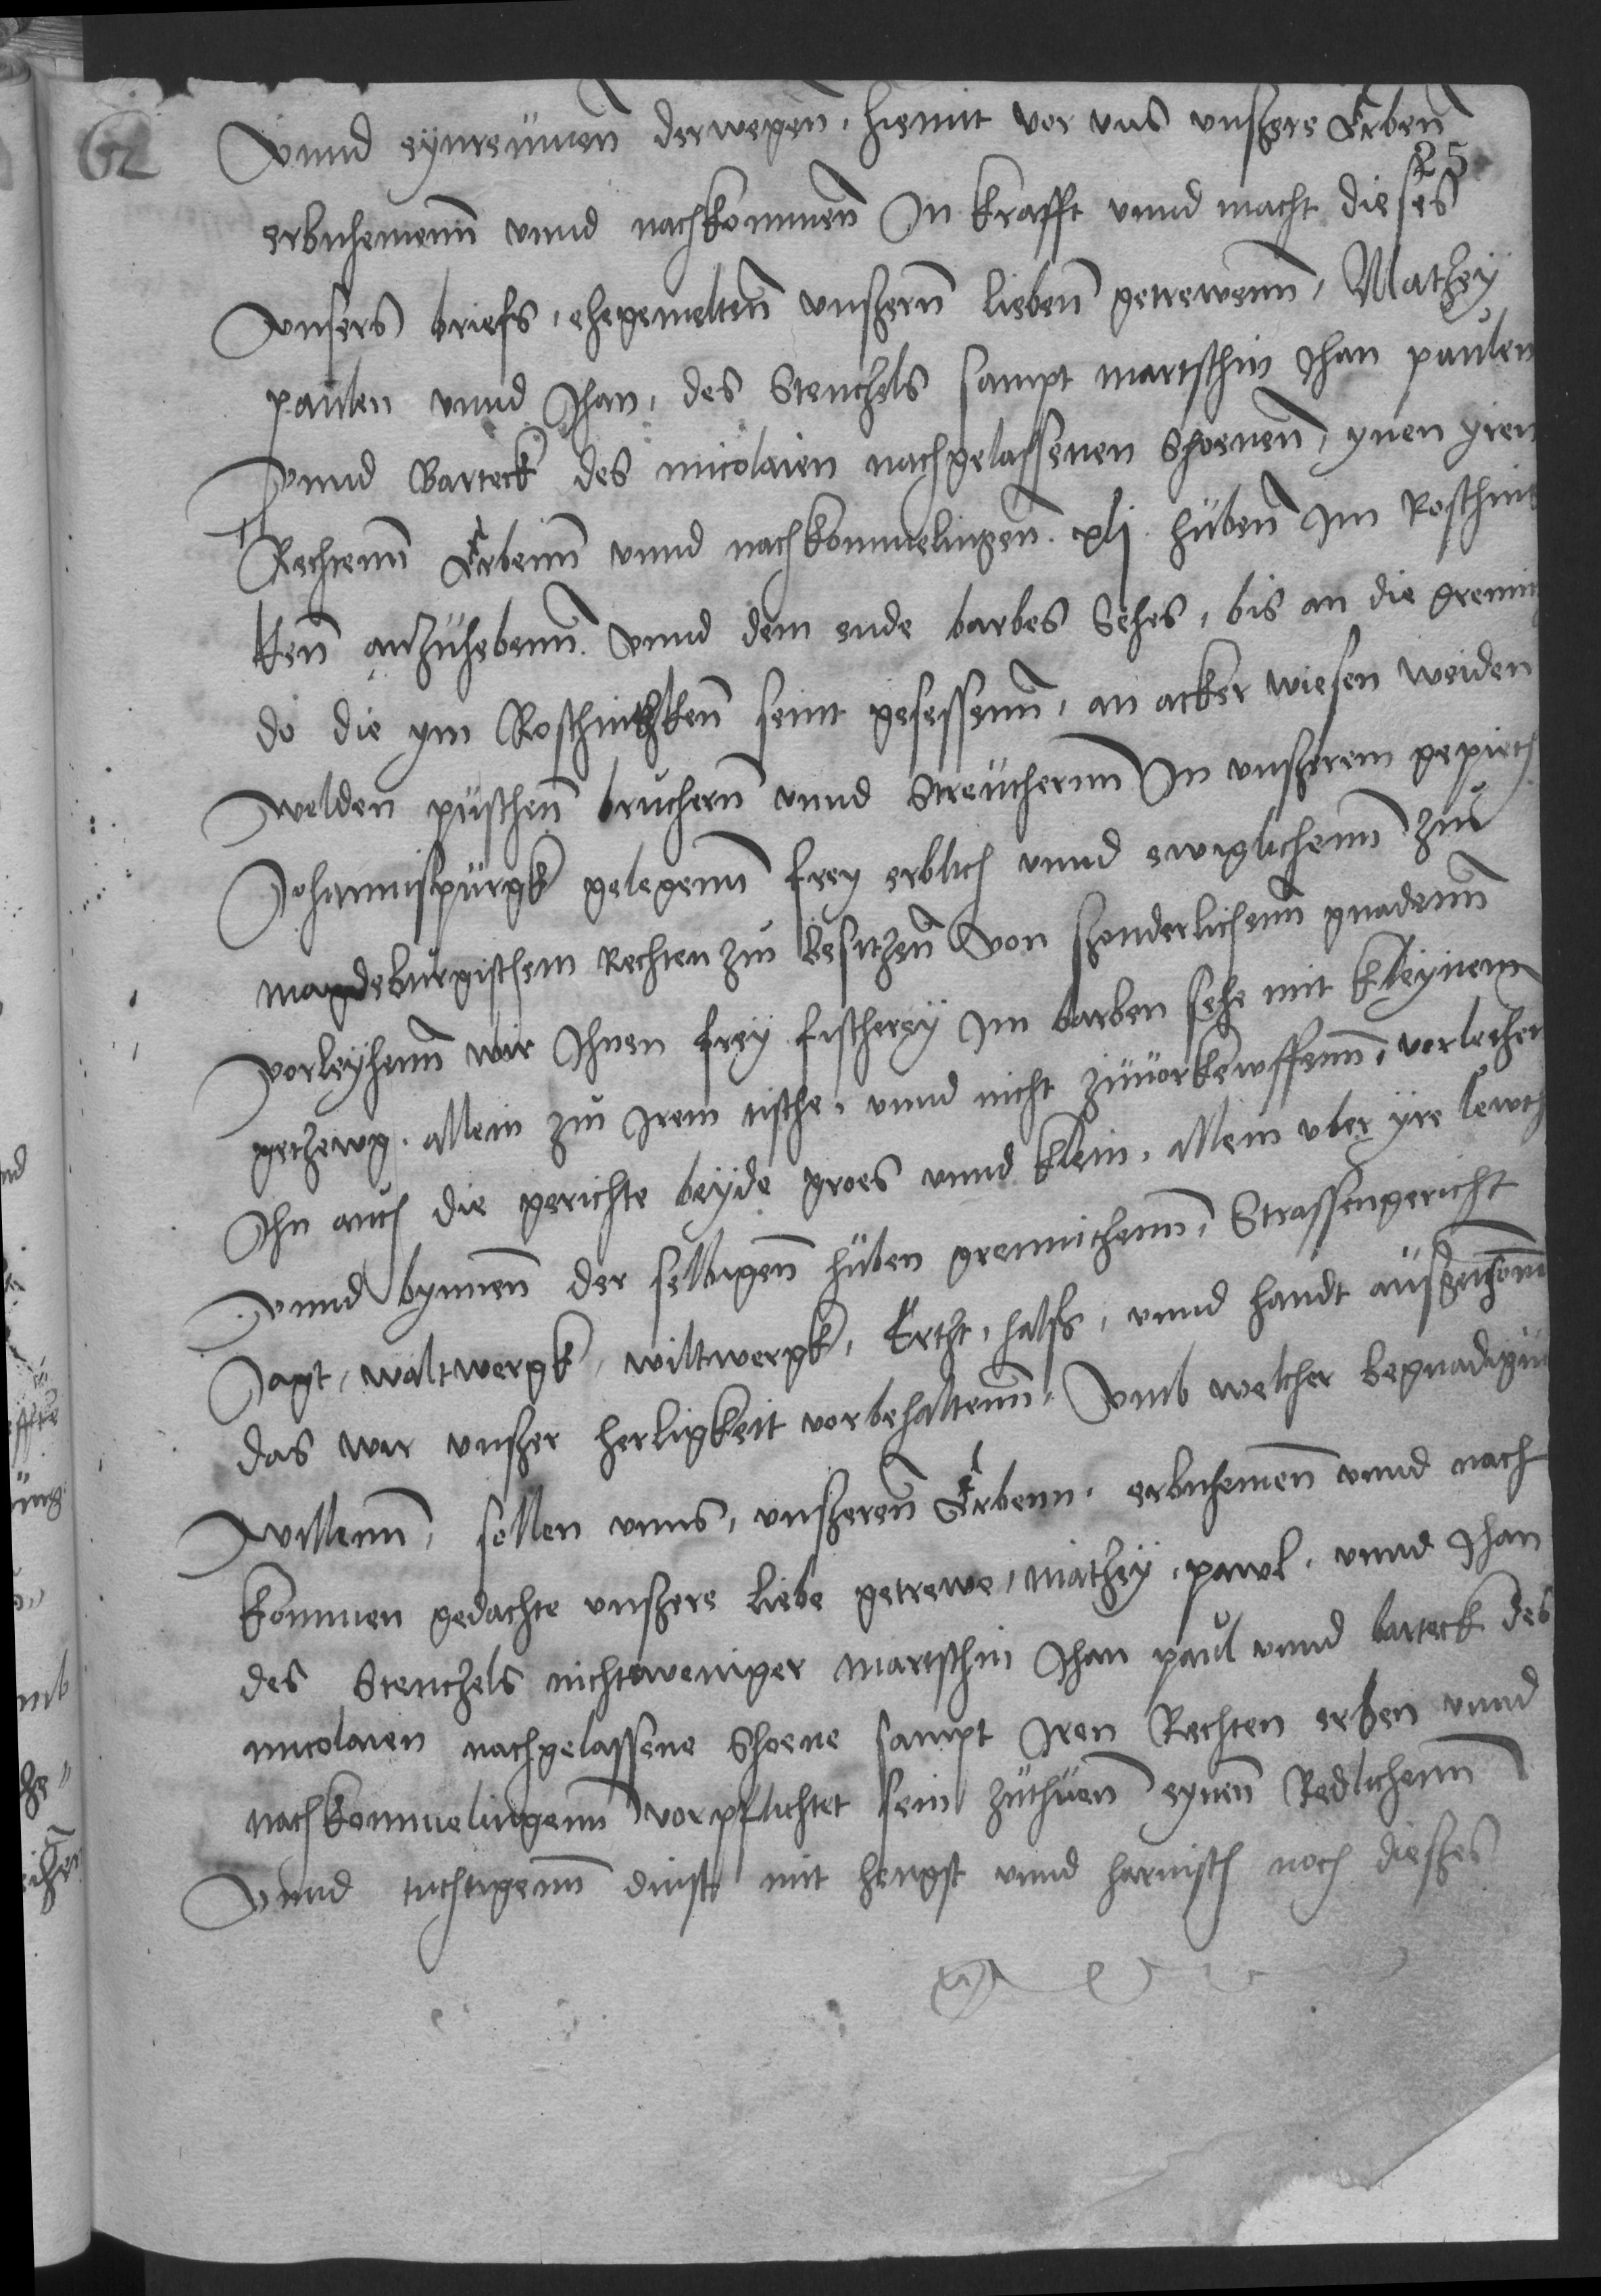 62
Vnnd eynreumen derwegen, hiemit vor vns vnszere Erben
25
erbnhemenn vnnd nachkommen In krafft vnnd macht dieses
vnsers briefs, ehegemelten vnszern lieben getrewenn, Mathey
paulen vnnd Jhan, des Stenchels sampt martschin Jhan paulen
Vnnd Barteck des nicolaien nachgelassenen Shoenen, ynen yren
Rechtenn Erbenn vnnd nachkommelingen. xlj. huben Im Roschint
ken anzuhebenn. Vnnd dem ende barbes Sehes, bis an die grenin
do die ym Roschintzken seint gesessenn, an acker wiesen weiden
welden puschen bruchern vnnd Streuchernn In vnszerem gepieth
Johannispurgk gelegenn frey erblich vnnd ewiglichenn zu
magdeburgischem Rechten zu besitzen Von szonderlichenn gnadenn
vorleyhenn wir Ihnen frey fischerey Im barben sehe mit kleynem
getzewg. allein zu Irem tische. vnnd nicht zuuorkewffenn, vorleihen
Ihn auch die gerichte beyde groes vnnd klein. allein vber yre lewth
Vnnd bynnen der selbigen huben grennichenn, Strassengericht
Jagt, waltwergk, wiltwergk, Ertzt, halss, vnnd handt auszgenhom
das wir vnszer herligkeit vorbehaltenn. Vmb welcher begnadigun
willenn, sollen vnns, vnszeren Erbenn. erbnhemen vnnd nach
kommen gedachte vnszere liebe getrewe, mathey, pawl. vnnd Jhan
des Stenchels nichtsweniger martschin Jhan paul vnnd barteck des
nicolaien nachgelassene Shoene sampt Iren Rechten erben vnnd
nachkommelingenn vorpflichtet sein zuthuen eynen Redlichenn
Vnnd tuchtigenn dinst mit hengst vnnd harnisch noch dieszes